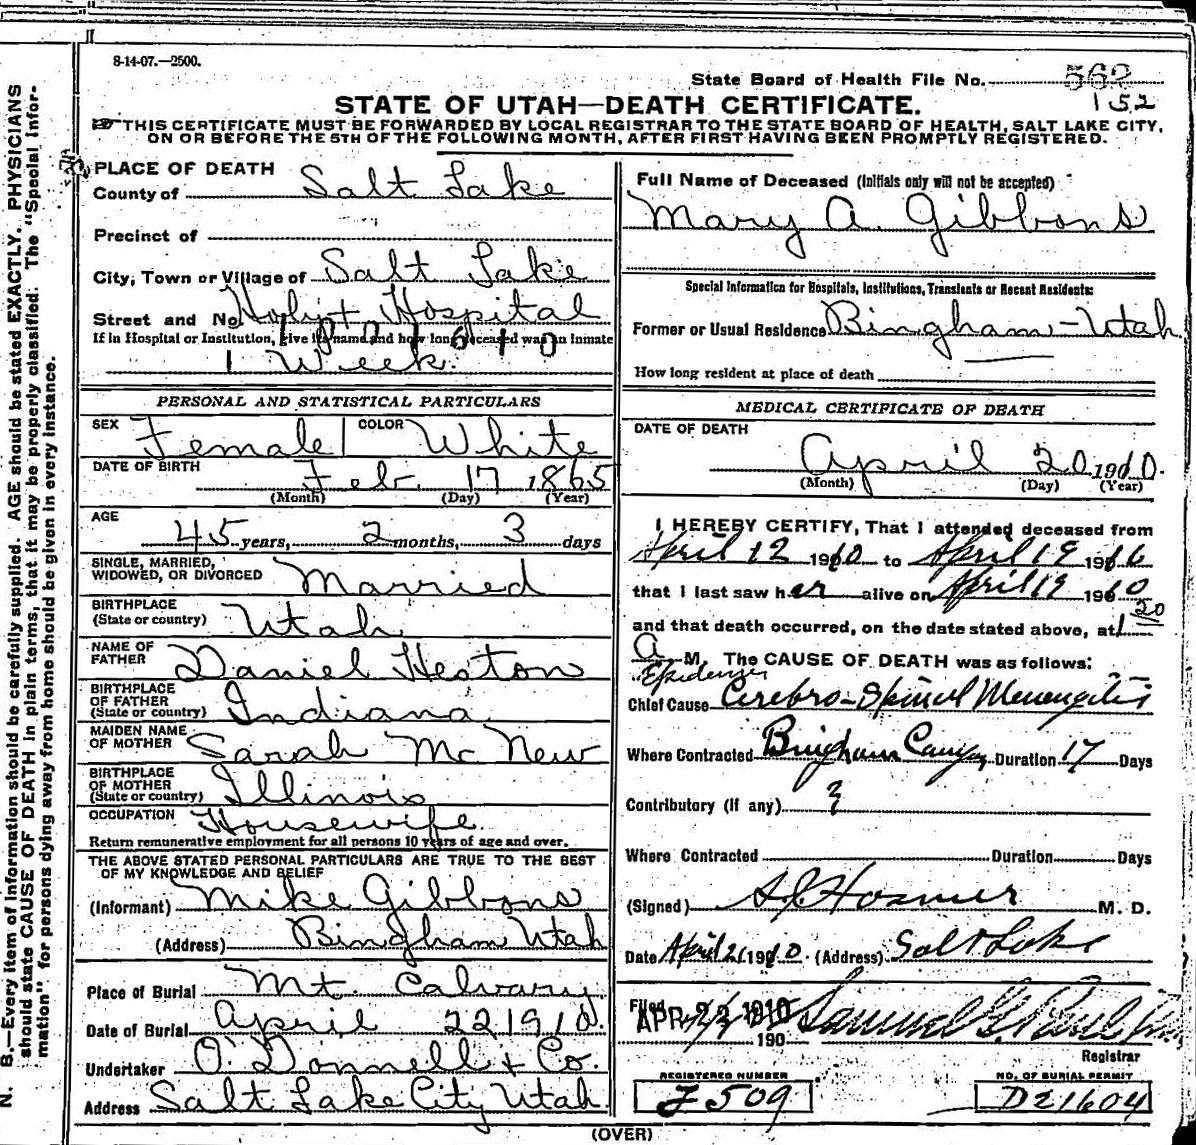 8-14-07.—2500.
State Board of Health File No. 562
152
STATE OF UTAH—DEATH CERTIFICATE.
THIS CERTIFICATE MUST BE FORWARDED BY LOCAL REGISTRAR TO THE STATE BOARD OF HEALTH, SALT LAKE CITY,
ON OR BEFORE THE 5TH OF THE FOLLOWING MONTH, AFTER FIRST HAVING BEEN PROMPTLY REGISTERED.
PLACE OF DEATH
County of Salt Lake
Precinct of
City, Town or Village of Salt Lake
Street and No. Holy + Hospital
If in Hospital or Institution, give its name and how long deceased was an inmate
1001610
1 Week.
PERSONAL AND STATISTICAL PARTICULARS
SEX Female COLOR White
DATE OF BIRTH Feb. 17 1865
(Month) (Day) (Year)
AGE 45 years, 2 months, 3 days
SINGLE, MARRIED,
WIDOWED, OR DIVORCED Married
BIRTHPLACE
(State or country) Utah
NAME OF
FATHER Daniel Heston
BIRTHPLACE
OF FATHER
(State or country) Indiana
MAIDEN NAME
OF MOTHER Sarah Mc New
BIRTHPLACE
OF MOTHER
(State or country) Illinois
OCCUPATION Housewife
Return remunerative employment for all persons 10 years of age and over.
THE ABOVE STATED PERSONAL PARTICULARS ARE TRUE TO THE BEST
OF MY KNOWLEDGE AND BELIEF
(Informant) Mike Gibbons
(Address) Bingham Utah
Place of Burial Mt. Calvary
Date of Burial April 22 1910.
Undertaker O'Donnell & Co.
Address Salt Lake City Utah
Full Name of Deceased (Initials only will not be accepted)
Mary A. Gibbons
Special Information for Hospitals, Institutions, Transients or Recent Residents:
Former or Usual Residence Bingham-Utah
How long resident at place of death
MEDICAL CERTIFICATE OF DEATH
DATE OF DEATH
April 20 1910.
(Month) (Day) (Year)
I HEREBY CERTIFY, That I attended deceased from
April 12 1910 to April 19 1910
that I last saw her alive on April 19 1910
and that death occurred, on the date stated above, at 1 20
A M. The CAUSE OF DEATH was as follows:
Epidemic
Chief Cause Cerebro-Spinal Menengitis
Where Contracted Bingham Canyon Duration 17 Days
Contributory (If any)
Where Contracted Duration Days
(Signed) Hosmer M. D.
Date April 21 1910 (Address) Salt Lake
Filed
APR 22 1910
190 Samuel G. Paul
Registrar
REGISTERED NUMBER
F 509
NO. OF BURIAL PERMIT
D21604
(OVER)
N. B.—Every item of information should be carefully supplied. AGE should be stated EXACTLY. PHYSICIANS
should state CAUSE OF DEATH in plain terms, that it may be properly classified. The "Special Infor-
mation" for persons dying away from home should be given in every instance.